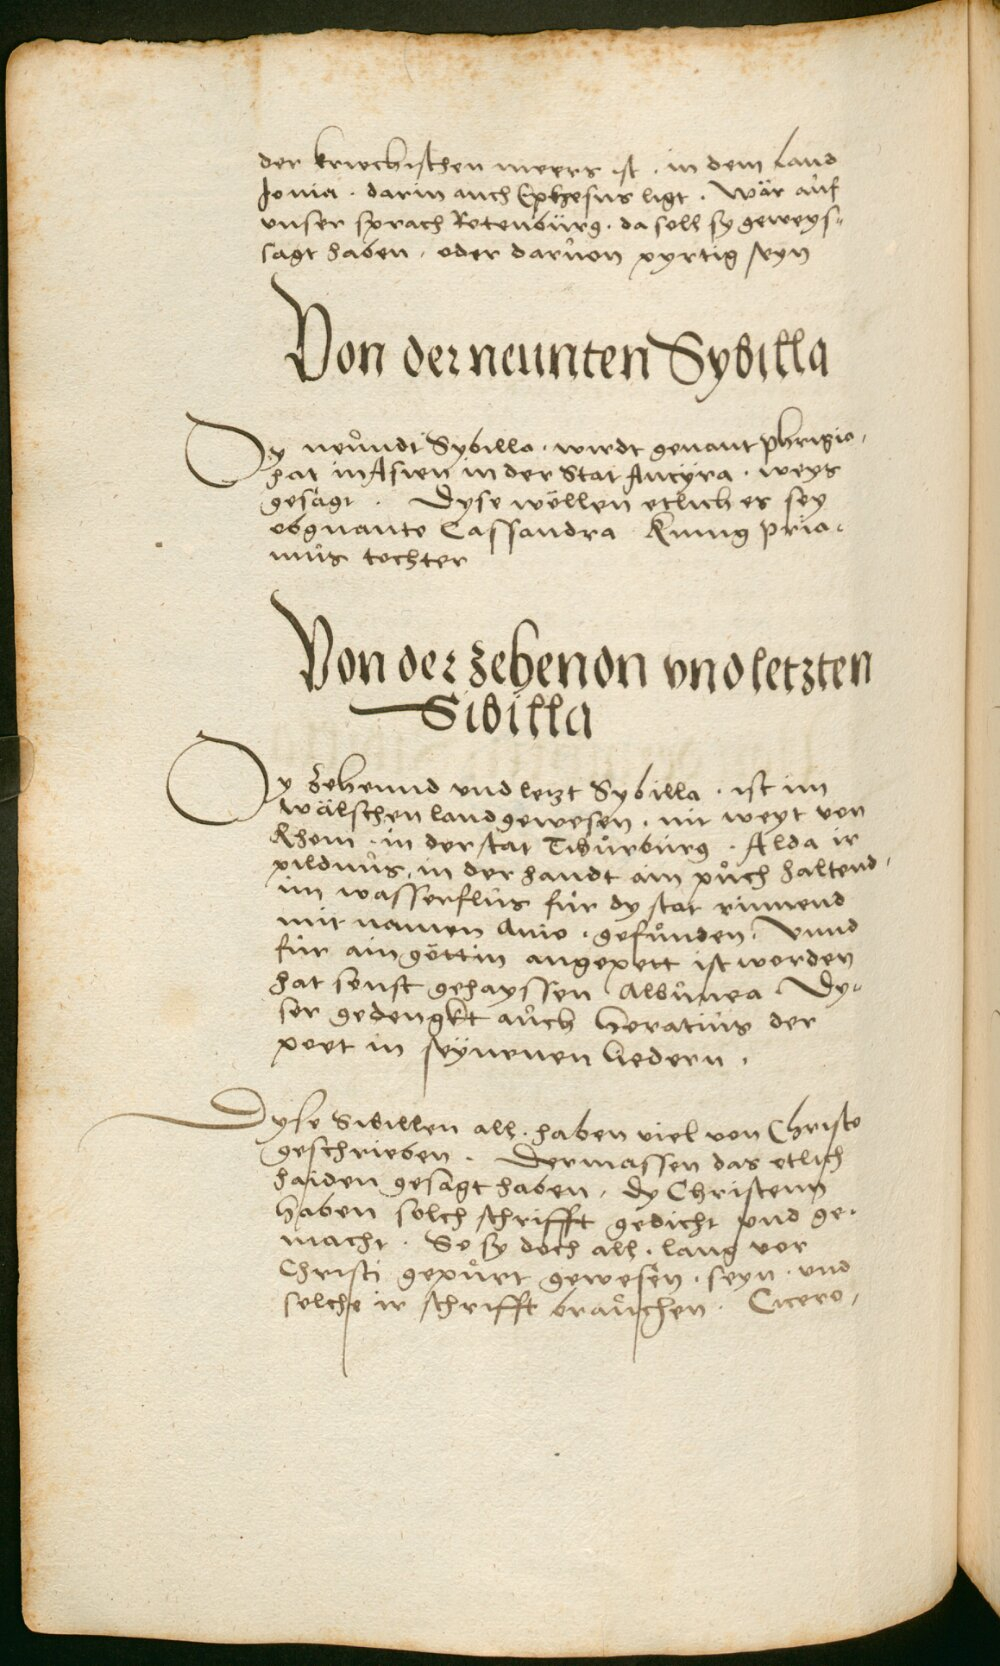 der kriechischen meers ist . in dem Land
Jonia . darin auch Ephesus ligt . Wär aůf
vnser sprach Rotenbůrg . da soll sy geweys-
sagt haben . oder daruon pyrtig seyn
Von der neunten Sybilla
Dy neůndt Sybilla . wirdt genant Phrigia,
hat in Asien in der Stat Ancÿra . weys
gesagt . Dyse wöllen etlich es sey
obgnante Cassandra Kunig Pria-
můs tochter
Von der zehendn vnd letzten
Sibilla
Dy Zehennd vnd letzt Sybilla . ist im
wälschen land gewesen . nit weyt von
Rhom . in der stat Tibůrbůrg . Alda ir
pildnůs, in der handt ain půch haltend,
im wasserflůs fůr dy stat rinnend
mit namen Anio . gefůnden . Vnnd
fůr ain göttin angepett ist worden
hat sonst gehayssen Albůnea . Dy-
ser gedengkt aůch Horatiůs der
poet in seÿnenen liedern .
Dyse Sibillen all . haben viel von Christo
geschrieben . Dermassen das etlich
haiden gesagt haben, dy Christenn
haben solch schrifft gedicht vnd ge-
macht . So sy doch all . lang vor
Christi gepůrt gewesen . seyn . vnd
solche ir schrifft braůchen . Cicero,